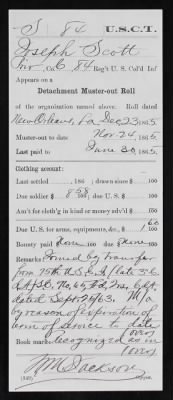 S | 84 | U.S.C.T.
Joseph Scott
Co. C 84 Reg't U. S. Col'd Inf
Appears on a
Detachment Muster-out Roll
of the organization named above. Roll dated
New Orleans, La Dec 23 1865
Muster-out to date Nov 24, 1865
Last paid to June 30, 1865
Clothing account:
Last settled , 186 ; drawn since $ 100
Due soldier $ 858 100; due U. S. $ 100
Am't for cloth'g in kind or money adv'd $ 100
Due U. S. for arms, equipments, &c., $ 60 100
Bounty paid $ 100; due $ 100
Remarks: Joined by transfer
from 75th U.S.C.I.
dated Sept 25/63. M/o
by reason of expiration of
term of service to date
(over)
Book mark: recognized as in
(over)
Wm Jackson
Copyist.